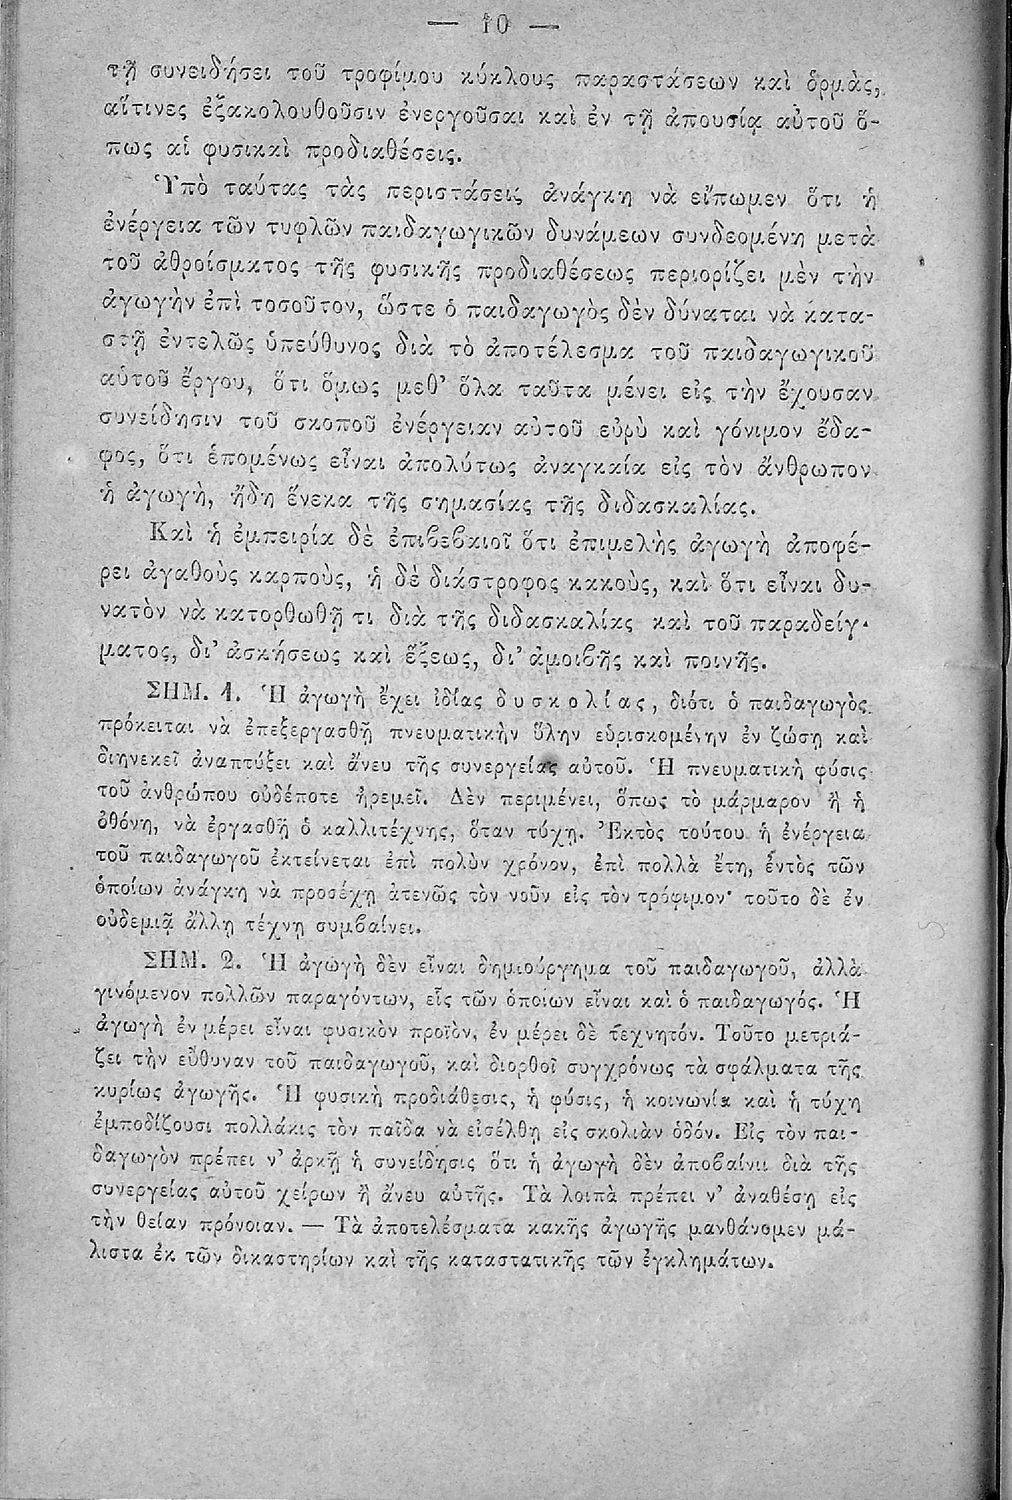 — 10 —
τῇ συνειδήσει τοῦ τροφίμου κύκλους παραστάσεων καὶ ὁρμὰς,
αἵτινες ἐξακολουθοῦσιν ἐνεργοῦσαι καὶ ἐν τῇ ἀπουσίᾳ αὐτοῦ ὅ-
πως αἱ φυσικαὶ προδιαθέσεις.
Ὑπὸ ταύτας τὰς περιστάσεις ἀνάγκη νὰ εἴπωμεν ὅτι ἡ
ἐνέργεια τῶν τυφλῶν παιδαγωγικῶν δυνάμεων συνδεομένη μετὰ
τοῦ ἀθροίσματος τῆς φυσικῆς προδιαθέσεως περιορίζει μὲν τὴν
ἀγωγὴν ἐπὶ τοσοῦτον, ὥστε ὁ παιδαγωγὸς δὲν δύναται νὰ κατα-
στῇ ἐντελῶς ὑπεύθυνος διὰ τὸ ἀποτέλεσμα τοῦ παιδαγωγικοῦ
αὑτοῦ ἔργου, ὅτι ὅμως μεθ’ ὅλα ταῦτα μένει εἰς τὴν ἔχουσαν
συνείδησιν τοῦ σκοποῦ ἐνέργειαν αὐτοῦ εὐρὺ καὶ γόνιμον ἔδα-
φος, ὅτι ἑπομένως εἶναι ἀπολύτως ἀναγκαία εἰς τὸν ἄνθρωπον
ἡ ἀγωγὴ, ἤδη ἕνεκα τῆς σημασίας τῆς διδασκαλίας.
Καὶ ἡ ἐμπειρία δὲ ἐπιβεβαιοῖ ὅτι ἐπιμελὴς ἀγωγὴ ἀποφέ-
ρει ἀγαθοὺς καρποὺς, ἡ δὲ διάστροφος κακοὺς, καὶ ὅτι εἶναι δυ-
νατὸν νὰ κατορθωθῇ τι διὰ τῆς διδασκαλίας καὶ τοῦ παραδείγ-
ματος, δι’ ἀσκήσεως καὶ ἕξεως, δι’ ἀμοιβῆς καὶ ποινῆς.
ΣΗΜ. 1. Ἡ ἀγωγὴ ἔχει ἰδίας δυσκολίας, διότι ὁ παιδαγωγὸς
πρόκειται νὰ ἐπεξεργασθῇ πνευματικὴν ὕλην εὑρισκομένην ἐν ζώσῃ καὶ
διηνεκεῖ ἀναπτύξει καὶ ἄνευ τῆς συνεργείας αὐτοῦ. Ἡ πνευματικὴ φύσις
τοῦ ἀνθρώπου οὐδέποτε ἠρεμεῖ. Δὲν περιμένει, ὅπως τὸ μάρμαρον ἢ ἡ
ὀθόνη, νὰ ἐργασθῇ ὁ καλλιτέχνης, ὅταν τύχῃ. Ἐκτὸς τούτου ἡ ἐνέργεια
τοῦ παιδαγωγοῦ ἐκτείνεται ἐπὶ πολὺν χρόνον, ἐπὶ πολλὰ ἔτη, ἐντὸς τῶν
ὁποίων ἀνάγκη νὰ προσέχῃ ἀτενῶς τὸν νοῦν εἰς τὸν τρόφιμον· τοῦτο δὲ ἐν
οὐδεμιᾷ ἄλλῃ τέχνῃ συμβαίνει.
ΣΗΜ. 2. Ἡ ἀγωγὴ δὲν εἶναι δημιούργημα τοῦ παιδαγωγοῦ, ἀλλὰ
γινόμενον πολλῶν παραγόντων, εἷς τῶν ὁποίων εἶναι καὶ ὁ παιδαγωγός. Ἡ
ἀγωγὴ ἐν μέρει εἶναι φυσικὸν προϊὸν, ἐν μέρει δὲ τεχνητόν. Τοῦτο μετριά-
ζει τὴν εὔθυναν τοῦ παιδαγωγοῦ, καὶ διορθοῖ συγχρόνως τὰ σφάλματα τῆς
κυρίως ἀγωγῆς. Ἡ φυσικὴ προδιάθεσις, ἡ φύσις, ἡ κοινωνία καὶ ἡ τύχη
ἐμποδίζουσι πολλάκις τὸν παῖδα νὰ εἰσέλθῃ εἰς σκολιὰν ὁδόν. Εἰς τὸν παι-
δαγωγὸν πρέπει ν’ ἀρκῇ ἡ συνείδησις ὅτι ἡ ἀγωγὴ δὲν ἀποβαίνει διὰ τῆς
συνεργείας αὐτοῦ χείρων ἢ ἄνευ αὐτῆς. Τὰ λοιπὰ πρέπει ν’ ἀναθέσῃ εἰς
τὴν θείαν πρόνοιαν. — Τὰ ἀποτελέσματα κακῆς ἀγωγῆς μανθάνομεν μά-
λιστα ἐκ τῶν δικαστηρίων καὶ τῆς καταστατικῆς τῶν ἐγκλημάτων.